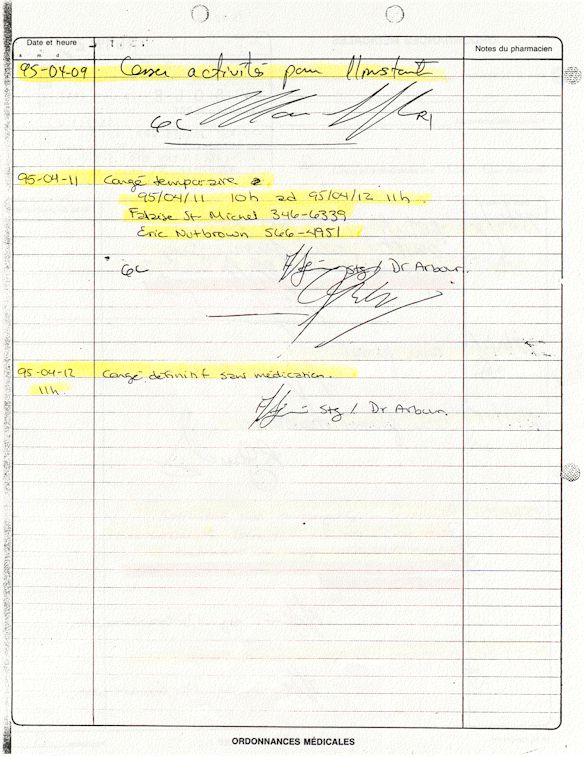 Date et heure
a m d
Notes du pharmacien
95-04-09 Cesser activités pour l'instant
R1
95-04-11 Congé temporaire
95/04/11 10h ad 95/04/12 11h.
Falaise St-Michel 346-6339
Eric Nutbrown 566-4951
stg / Dr Arbour.
95-04-12 Congé définitif sans médication.
11h.
stg / Dr Arbour.
ORDONNANCES MÉDICALES